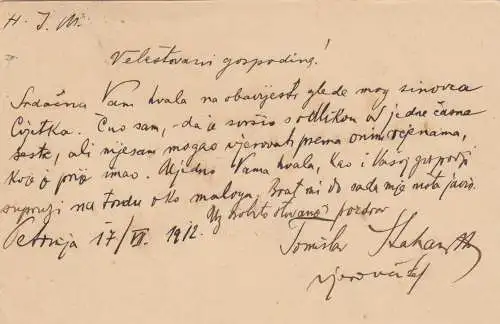 H. J. M.
Velestovani gospodine!
Srdačna Vam hvala na obavijesti glede mog sinovca
Cvjetka. Čuo sam, da je svršio s odlikom od jedne časne
sestre, ali nijesam mogao vjerovati prema onim ocjenama,
koje je prije imao. Ujedno Vama hvala, kao i Vašoj gospodji
supruzi na trudu oko maloga. Brat mi do sada nije ništa javio.
Uz pozdrav
Petrinja 17/VI. 1912. Tomislav
vjeroučitelj